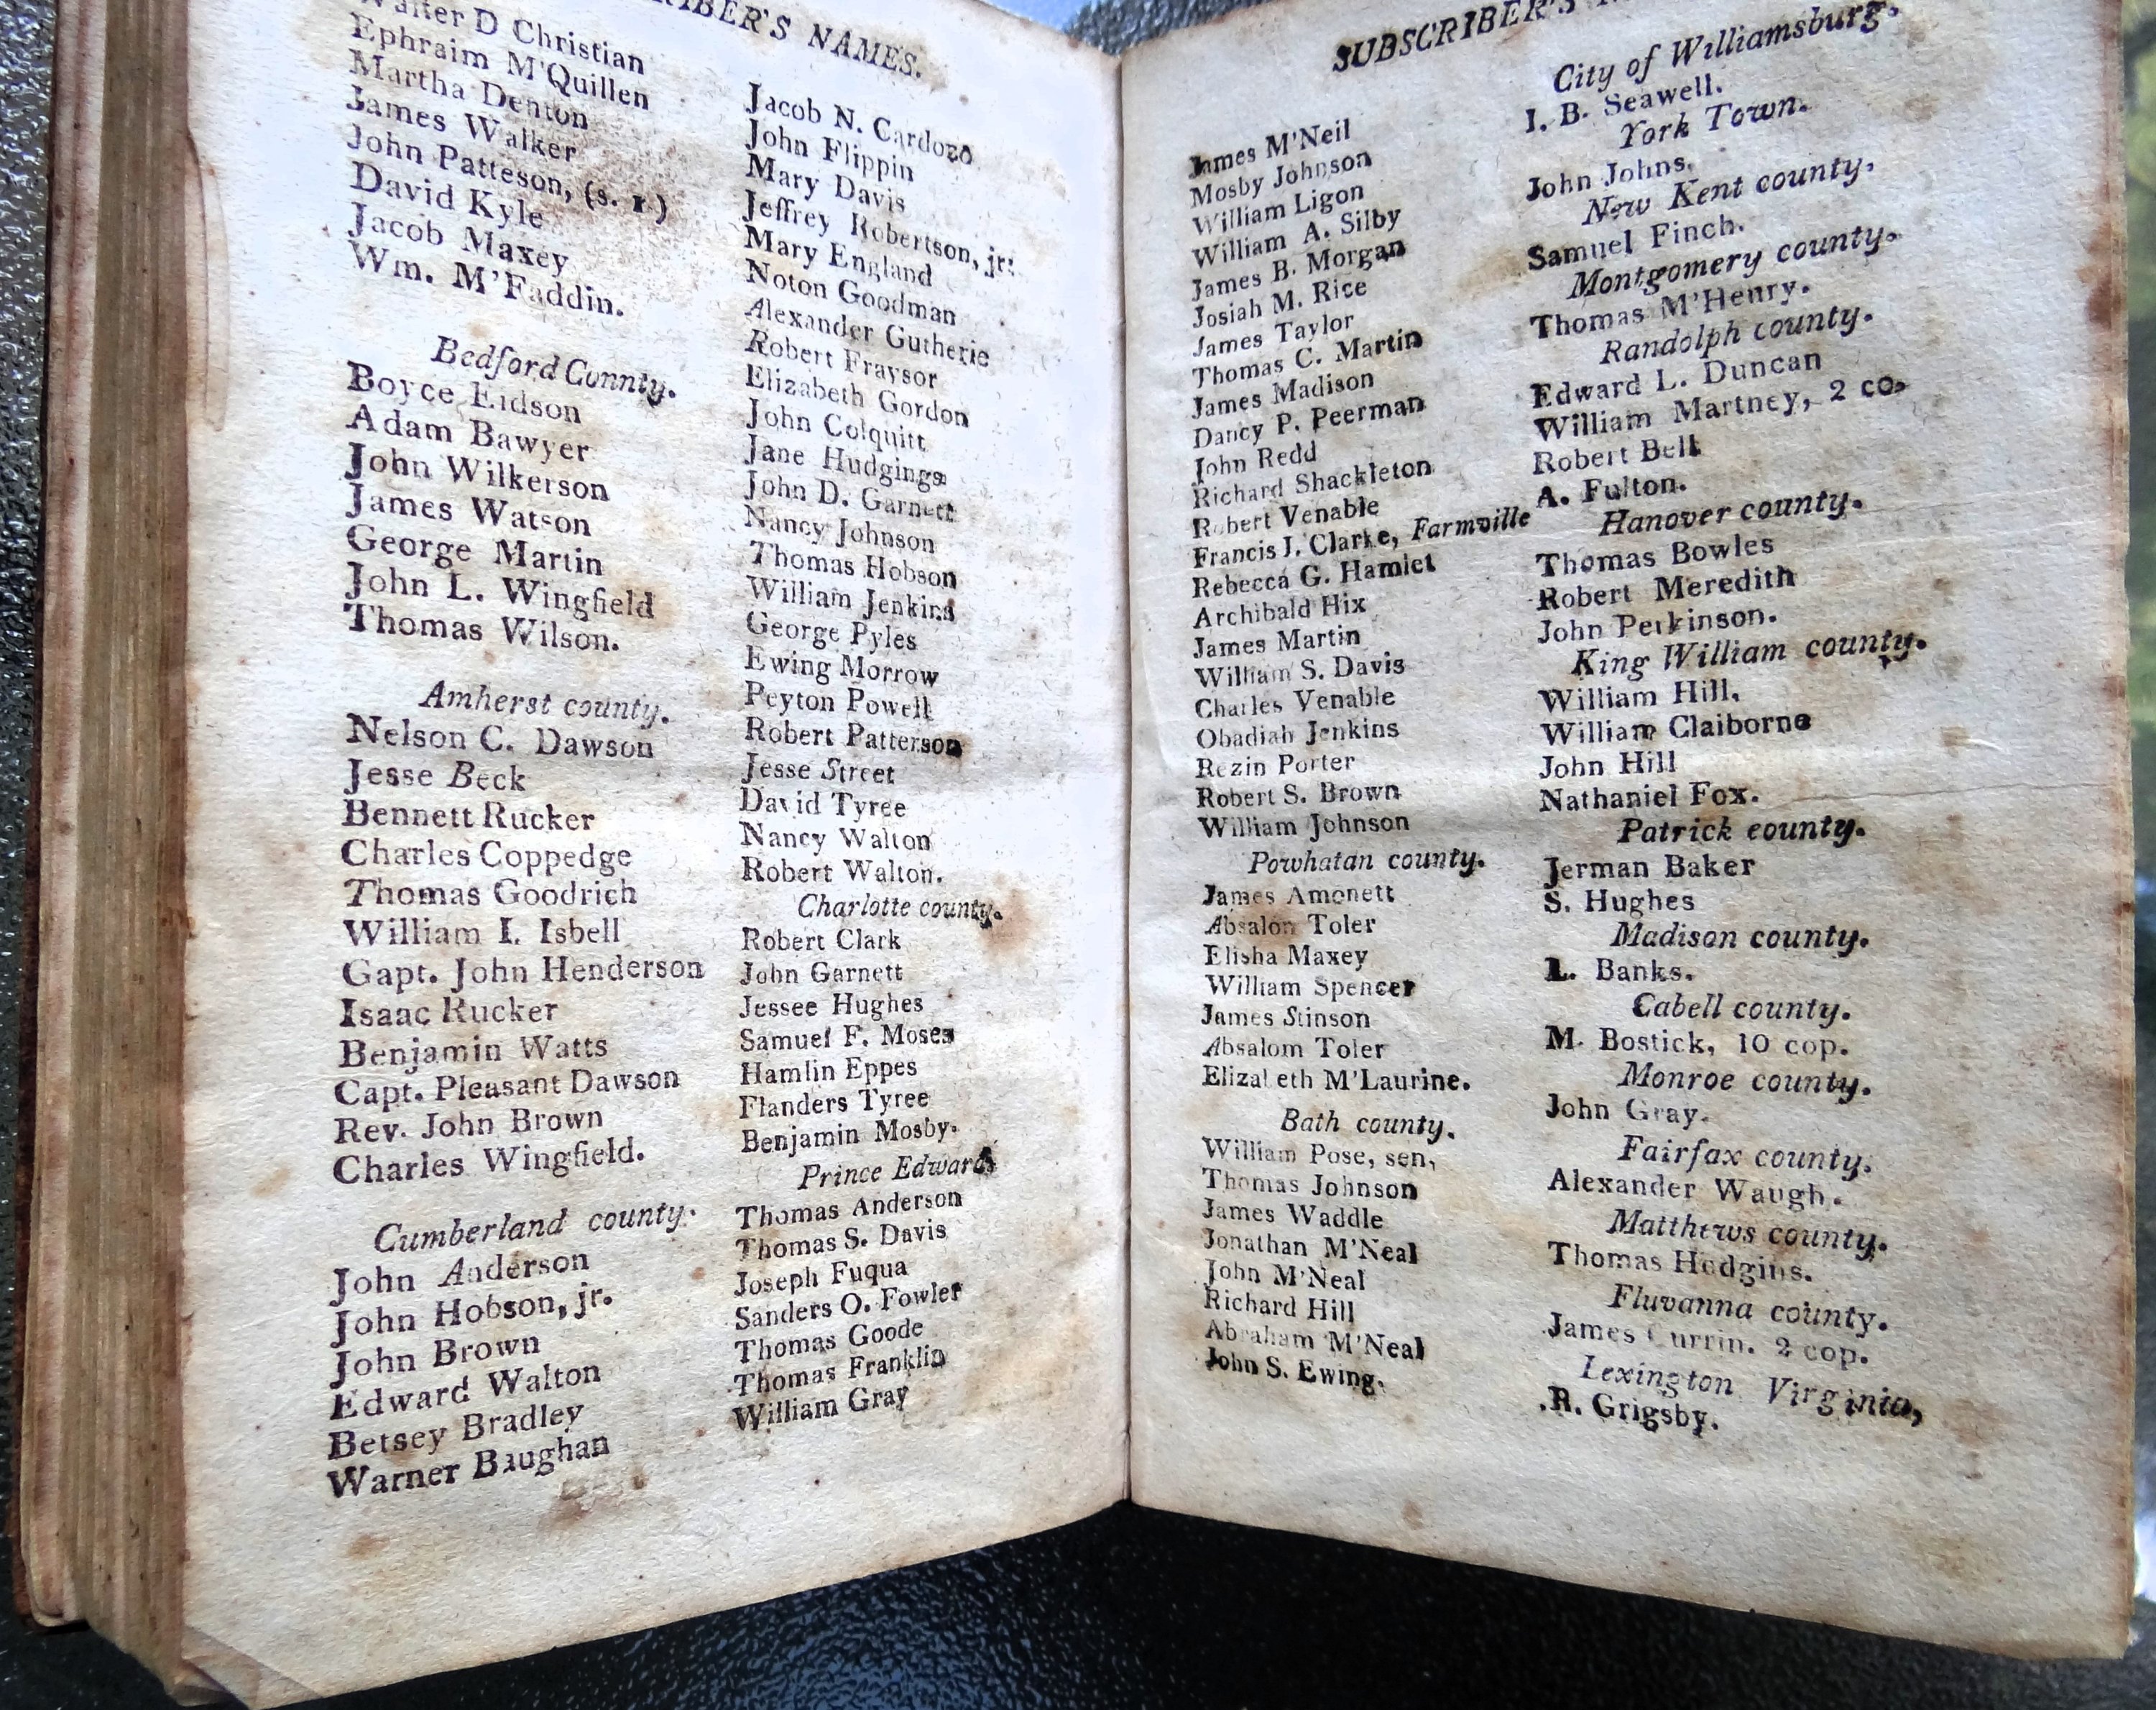 SUBSCRIBER'S NAMES.
Walter D Christian
Ephraim M'Quillen
Martha Denton
James Walker
John Patteson, (s. r.)
David Kyle
Jacob Maxey
Wm. M'Faddin.
Bedford Connty.
Boyce Eidson
Adam Bawyer
John Wilkerson
James Watson
George Martin
John L. Wingfield
Thomas Wilson.
Amherst county.
Nelson C. Dawson
Jesse Beck
Bennett Rucker
Charles Coppedge
Thomas Goodrich
William I. Isbell
Gapt. John Henderson
Isaac Rucker
Benjamin Watts
Capt. Pleasant Dawson
Rev. John Brown
Charles Wingfield.
Cumberland county.
John Anderson
John Hobson, jr.
John Brown
Edward Walton
Betsey Bradley
Warner Baughan
Jacob N. Cardozo
John Flippin
Mary Davis
Jeffrey Robertson, jr.
Mary England
Noton Goodman
Alexander Gutherie
Robert Fraysor
Elizabeth Gordon
John Colquitt
Jane Hudgings
John D. Garnett
Nancy Johnson
Thomas Hobson
William Jenkins
George Pyles
Ewing Morrow
Peyton Powell
Robert Patterson
Jesse Street
David Tyree
Nancy Walton
Robert Walton.
Charlotte county.
Robert Clark
John Garnett
Jessee Hughes
Samuel F. Moses
Hamlin Eppes
Flanders Tyree
Benjamin Mosby.
Prince Edward
Thomas Anderson
Thomas S. Davis
Joseph Fuqua
Sanders O. Fowler
Thomas Goode
Thomas Franklin
William Gray
SUBSCRIBER'S
James M'Neil
Mosby Johnson
William Ligon
William A. Silby
James B. Morgan
Josiah M. Rice
James Taylor
Thomas C. Martin
James Madison
Dancy P. Peerman
John Redd
Richard Shackleton
Robert Venable
Francis J. Clarke, Farmville
Rebecca G. Hamlet
Archibald Hix
James Martin
William S. Davis
Charles Venable
Obadiah Jenkins
Rezin Porter
Robert S. Brown
William Johnson
Powhatan county.
James Amonett
Absalon Toler
Elisha Maxey
William Spencer
James Stinson
Absalom Toler
Elizabeth M'Laurine.
Bath county.
William Pose, sen,
Thomas Johnson
James Waddle
Jonathan M'Neal
John M'Neal
Richard Hill
Abraham M'Neal
John S. Ewing.
City of Williamsburg.
I. B. Seawell.
York Town.
John Johns.
New Kent county.
Samuel Finch.
Montgomery county.
Thomas M'Henry.
Randolph county.
Edward L. Duncan
William Martney, 2 co.
Robert Bell
A. Fulton.
Hanover county.
Thomas Bowles
Robert Meredith
John Perkinson.
King William county.
William Hill,
William Claiborne
John Hill
Nathaniel Fox.
Patrick county.
Jerman Baker
S. Hughes
Madison county.
L. Banks.
Cabell county.
M. Bostick, 10 cop.
Monroe county.
John Gray.
Fairfax county.
Alexander Waugh.
Matthews county.
Thomas Hudgins.
Fluvanna county.
James 2 cop.
Lexington Virginia,
R. Grigsby.